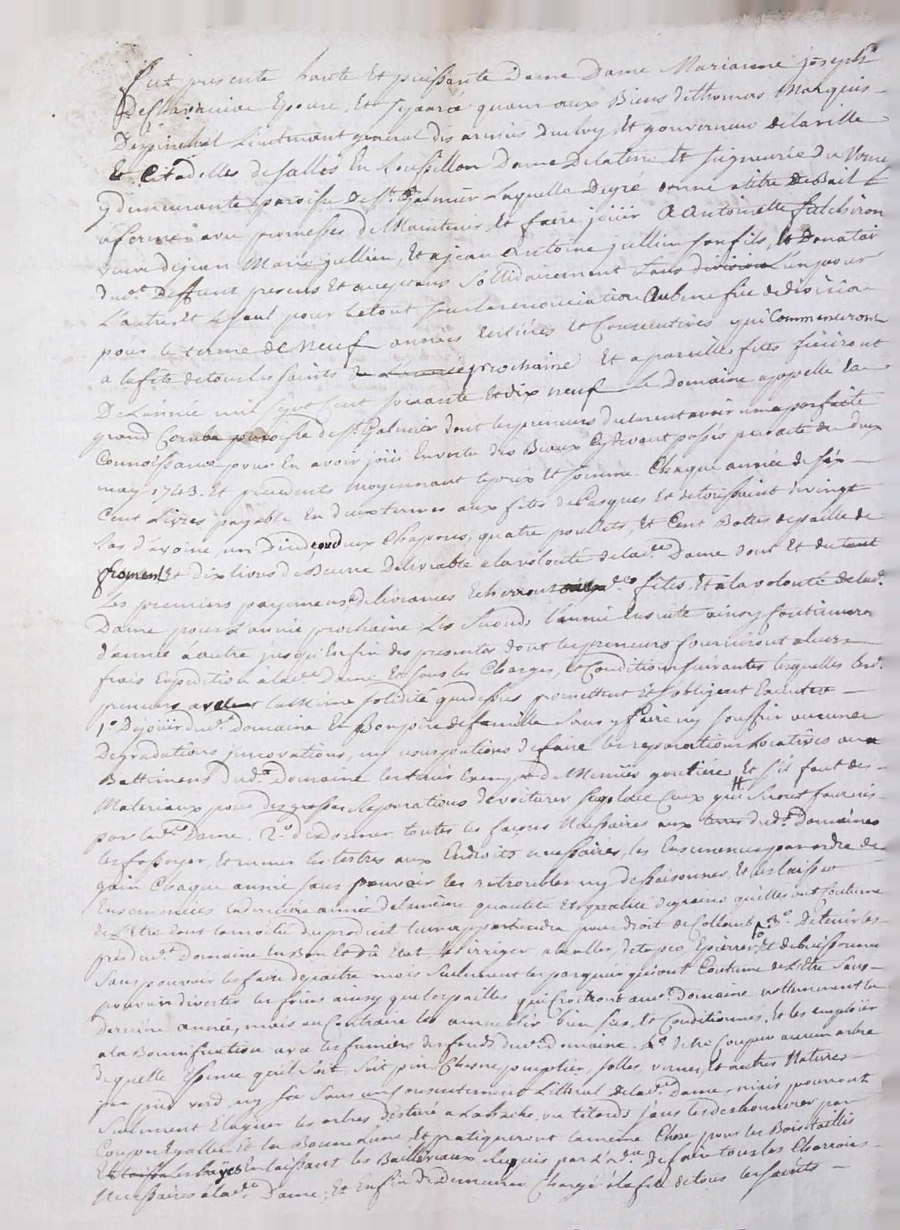 fut presente haute Et puissante Dame Dame Marianne joseph
de Epouse, Et separée quant aux Biens de thomas Marquis
Despinchal Lieutenant general des armées du Roy, Et gouverneur de la ville
Et Citadelles de Salles En Roussillon Dame De la terre Et seigneurie du Verne
y demeurante paroisse de St. Galmier Laquelle Degré donne a titre de Bail
a ferme avec promesses de Maintenir, Et faire joüir A Antoinette
veuve de jean Marie jullien, Et a jean Antoine jullien son fils, Et Donatair
dud.t Deffunt presens Et acceptans Sollidairement Sans division L'un pour
L'autre, Et Le seul pour Le tout sous la renonciation Au Benefice de division
pour le terme de Neuf années Entieres Et Consecutives qui Commenceront
a la fete de tous les saints prochaine Et a pareilles fetes finiront
De L'année mil sept Cent soixante Et dix neuf Le Domaine appellé de la
grand Combe paroisse de St. Galmier dont les preneurs dirent avoir une parfaite
Connoissance pour En avoir joüi En vertu des Beaux Cy devant passés pardevant du deux
may 1743. Et precedents moyennant le prix Et somme Chaque année de six
Cent Livres payable En deux termes aux fetes de Pasques Et de toussaint de vingt
ras d'avoine, un Dind, deux Chapons, quatre poullets, Et Cent Bottes de paille de
froment Et dix livres de Beurre Delivrable a la volonté de lad.e Dame dont Et du tout
Les premiers payemens delivrances Echerront fetes, Et a la volonté de lad.e
Dame pour L'année prochaine, Les Seconds L'année Ensuite ainsy Continuera
d'année a autre jusqu'En fin des presentes dont les preneurs fourniront a leurs
frais Expedition a lad.e Dame Et sous les Charges, Et Conditions suivantes lesquelles les d.
preneurs avec la même solidité que dessus promettent Et s'obligent Executer
1.o De joüir dud.t Domaine En Bon pere de famille Sans y faire ny souffrir aucunes
Degradations, innovations, ny usurpations de faire les reparations locatives aux
Battimens dud.t Domaine les tenir Exempt de Menües goutieres, Et s'il faut des
Materiaux pour des grosses Reparations de voiturer sur place Ceux qui Seront fournis
par lad.e Dame. 2.o de donner toutes les façons Necessaires aux terres dud.t Domaine
les fossoyer, Et remuer les tertres aux Endroits necessaires, les Ensemencer par ordre de
gain Chaque année sans pouvoir les retroubler ny dessaisonner, Et les laisser
Ensemencées la derniere année de la même quantité Et qualité de grains qu'elles ont Coutume
de L'Etre dont la moitié du produit leur appartiendra pour droit de Collonage 3.o De tenir les
prés dud.t Domaine En Bon Et dû Etat, les irriger Epierrer, Et debuissonner
Sans pouvoir les faire depaitre mais seulement les parquer qui ont Coutume de L'Etre Sans
pouvoir divertir les foins ainsy que les pailles qui Croitront aud.t Domaine notamment la
derniere année, mais au Contraire les ameublir bien secs, Et Conditionnés, Et les employer
a la Bonnification avec les fumiers des fonds dud.t Domaine. 4.o de ne Coupper aucun arbre
de quelle Espece qu'il soit, soit pin, Chesne, peuplier, solles, vernes, Et autres Natures
par pied verd, ny sec Sans un Consentement Litteral de lad.e Dame, mais pourront
Seulement Elaguer les arbres destiné a La hache, ou tetards sans les deshonorer par
Coupes Egalles, Et En Bonne Lune, Et pratiqueront la même Chose pour les Bois taillis
En laissant les Balliveaux Requis par L'ord.ce De faire tous les Charrois
Necessaires a lad.e Dame, Et Enfin de Demeurer Chargé a la fete de tous les saints